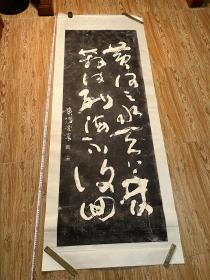 黄河之水天上来
奔流到海不復回